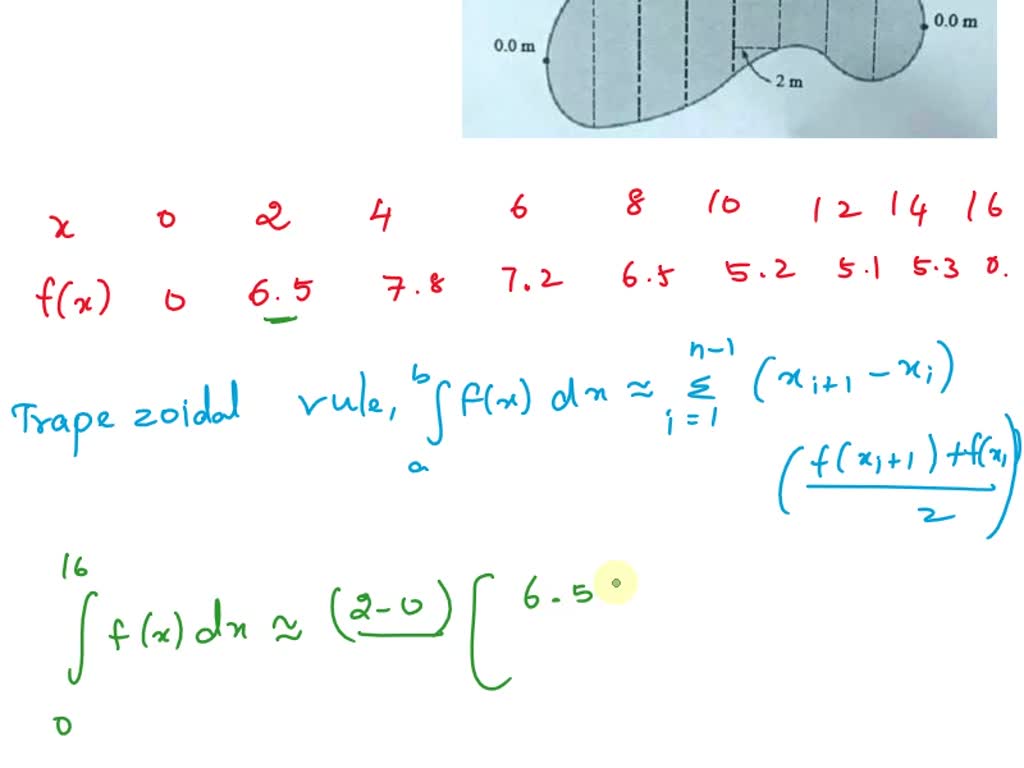 0.0 m
0.0 m
2 m
x 0 2 4 6 8 10 12 14 16
f(x) 0 6.5 7.8 7.2 6.5 5.2 5.1 5.3 0.
Trapezoidal rule, ∫ₐᵇ f(x) dx ≈ Σᵢ₌₁ⁿ⁻¹ (xᵢ₊₁ - xᵢ)
(f(xᵢ₊₁) + f(xᵢ)/2)
∫₀¹⁶ f(x) dx ≈ (2-0) [ 6.5